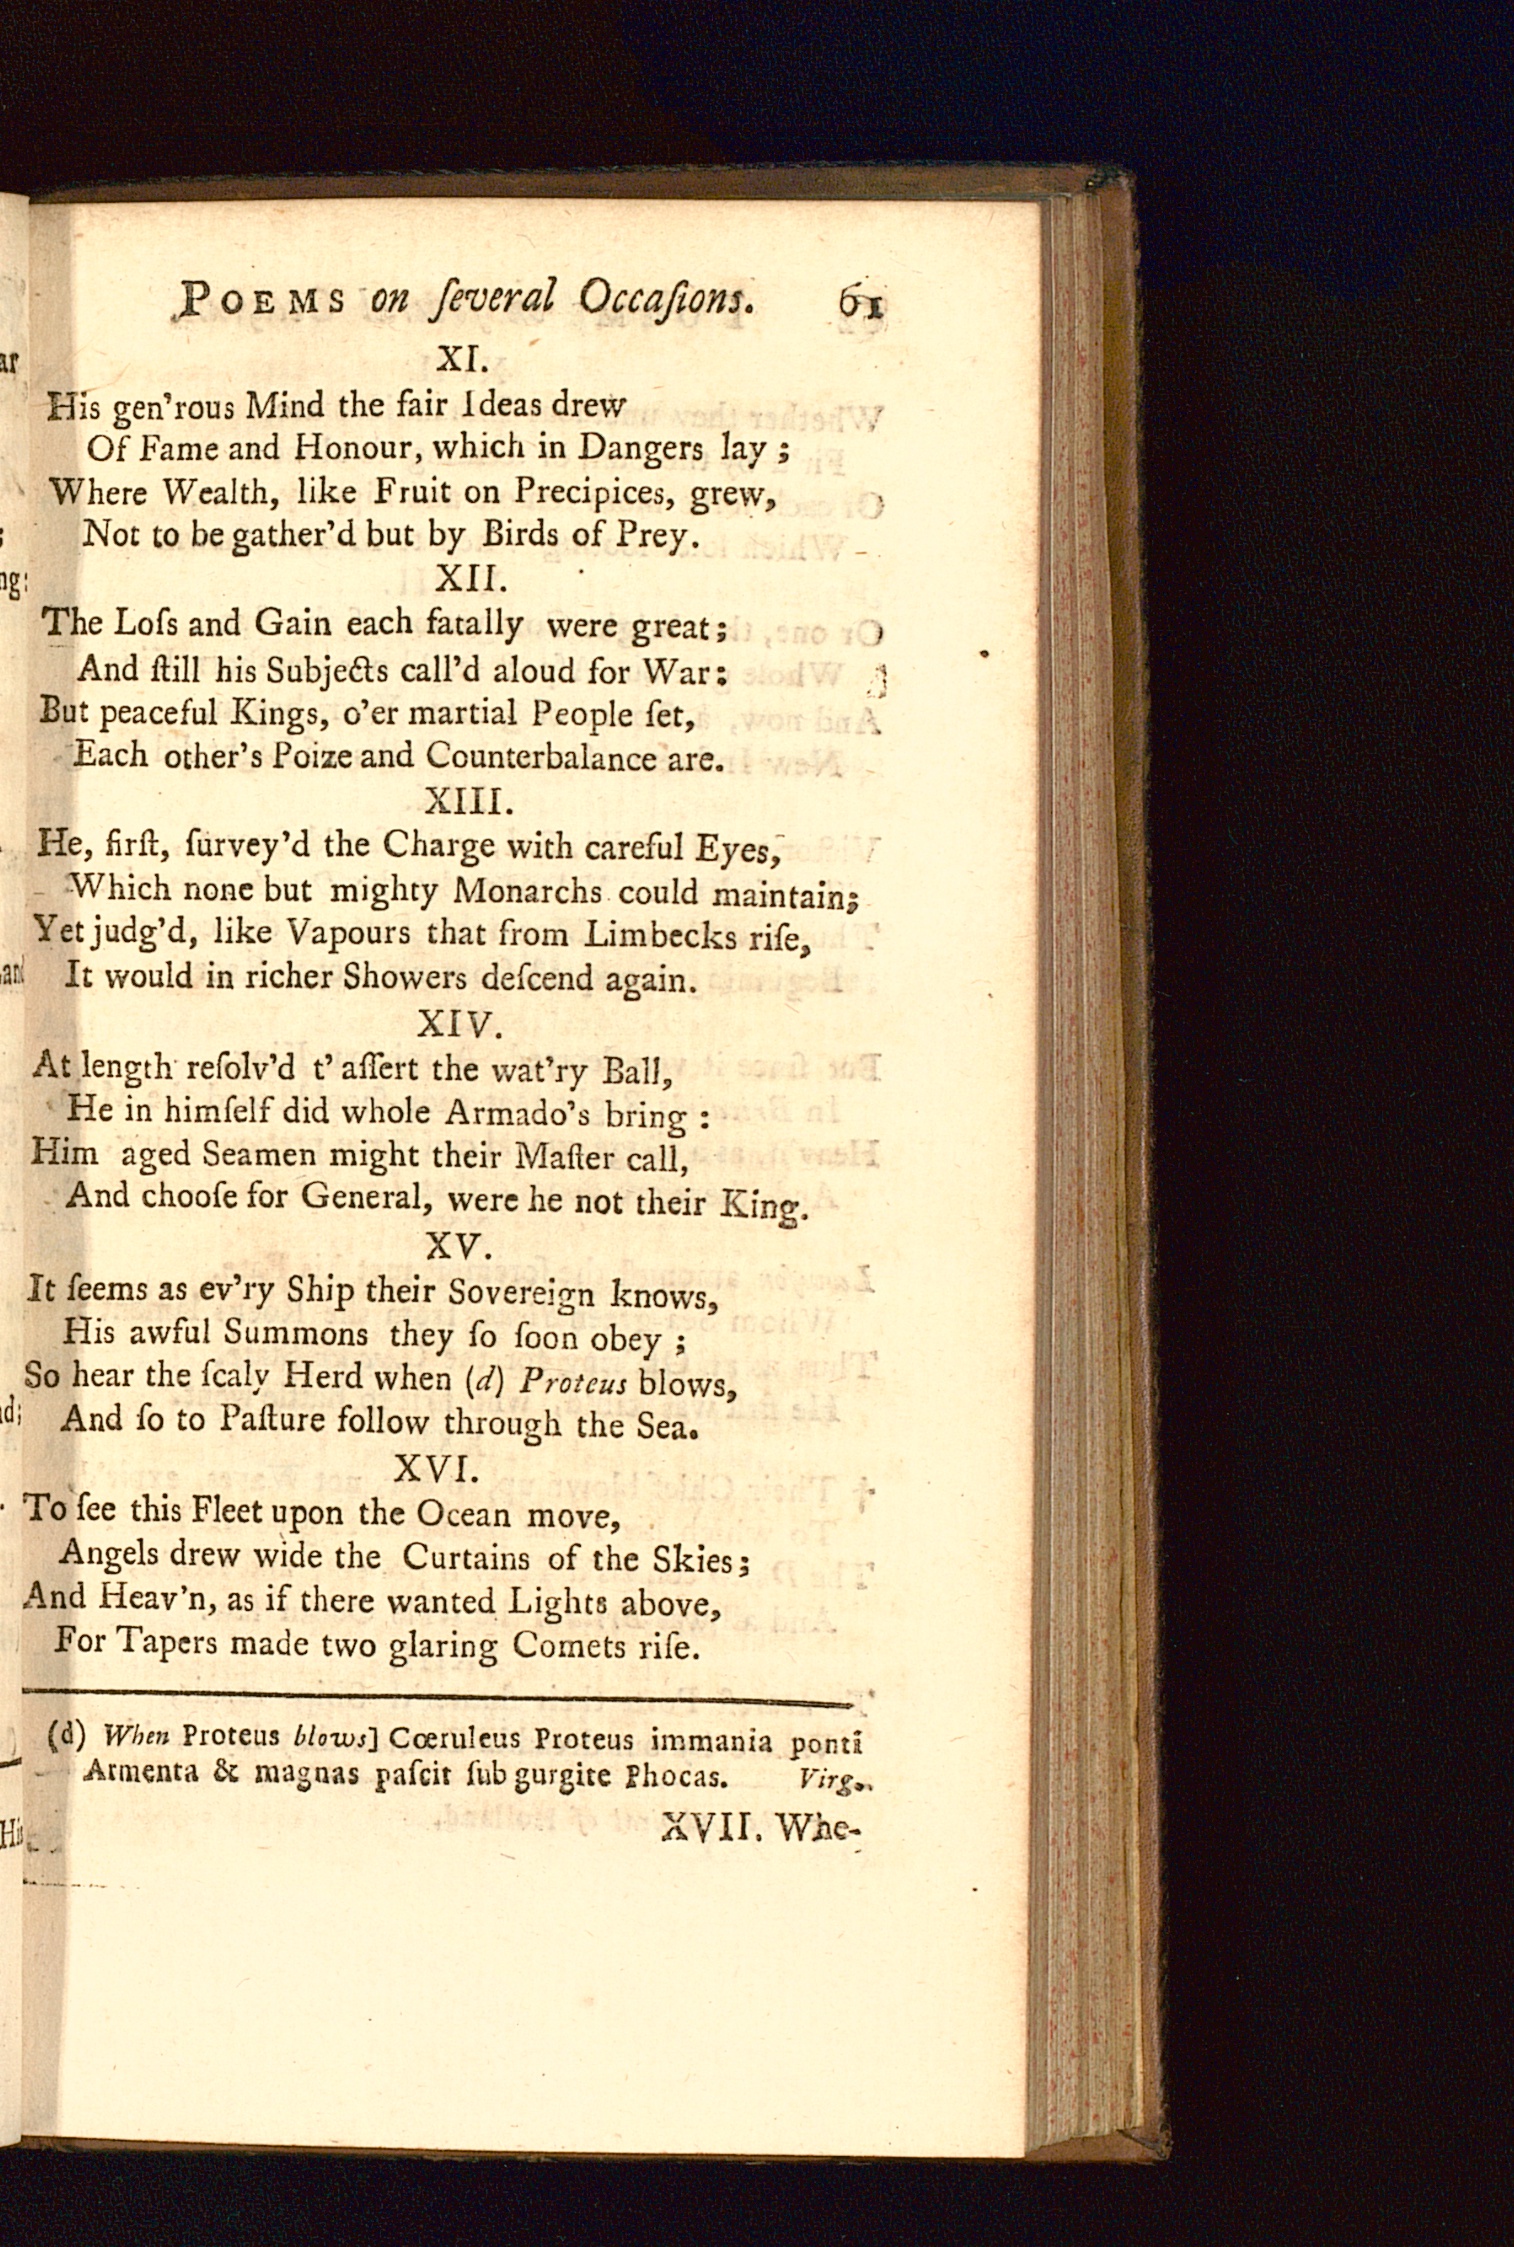 POEMS on ſeveral Occaſions. 61
XI.
His gen'rous Mind the fair Ideas drew
Of Fame and Honour, which in Dangers lay ;
Where Wealth, like Fruit on Precipices, grew,
Not to be gather'd but by Birds of Prey.
XII.
The Loſs and Gain each fatally were great;
And ſtill his Subjects call'd aloud for War:
But peaceful Kings, o'er martial People ſet,
Each other's Poize and Counterbalance are.
XIII.
He, firſt, ſurvey'd the Charge with careful Eyes,
Which none but mighty Monarchs could maintain;
Yet judg'd, like Vapours that from Limbecks riſe,
It would in richer Showers deſcend again.
XIV.
At length reſolv'd t' aſſert the wat'ry Ball,
He in himſelf did whole Armado's bring :
Him aged Seamen might their Maſter call,
And chooſe for General, were he not their King.
XV.
It ſeems as ev'ry Ship their Sovereign knows,
His awful Summons they ſo ſoon obey ;
So hear the ſcaly Herd when (d) Proteus blows,
And ſo to Paſture follow through the Sea.
XVI.
To ſee this Fleet upon the Ocean move,
Angels drew wide the Curtains of the Skies;
And Heav'n, as if there wanted Lights above,
For Tapers made two glaring Comets riſe.
(d) When Proteus blows] Cœruleus Proteus immania ponti
Armenta & magnas paſcit ſub gurgite Phocas. Virg.
XVII. Whe-